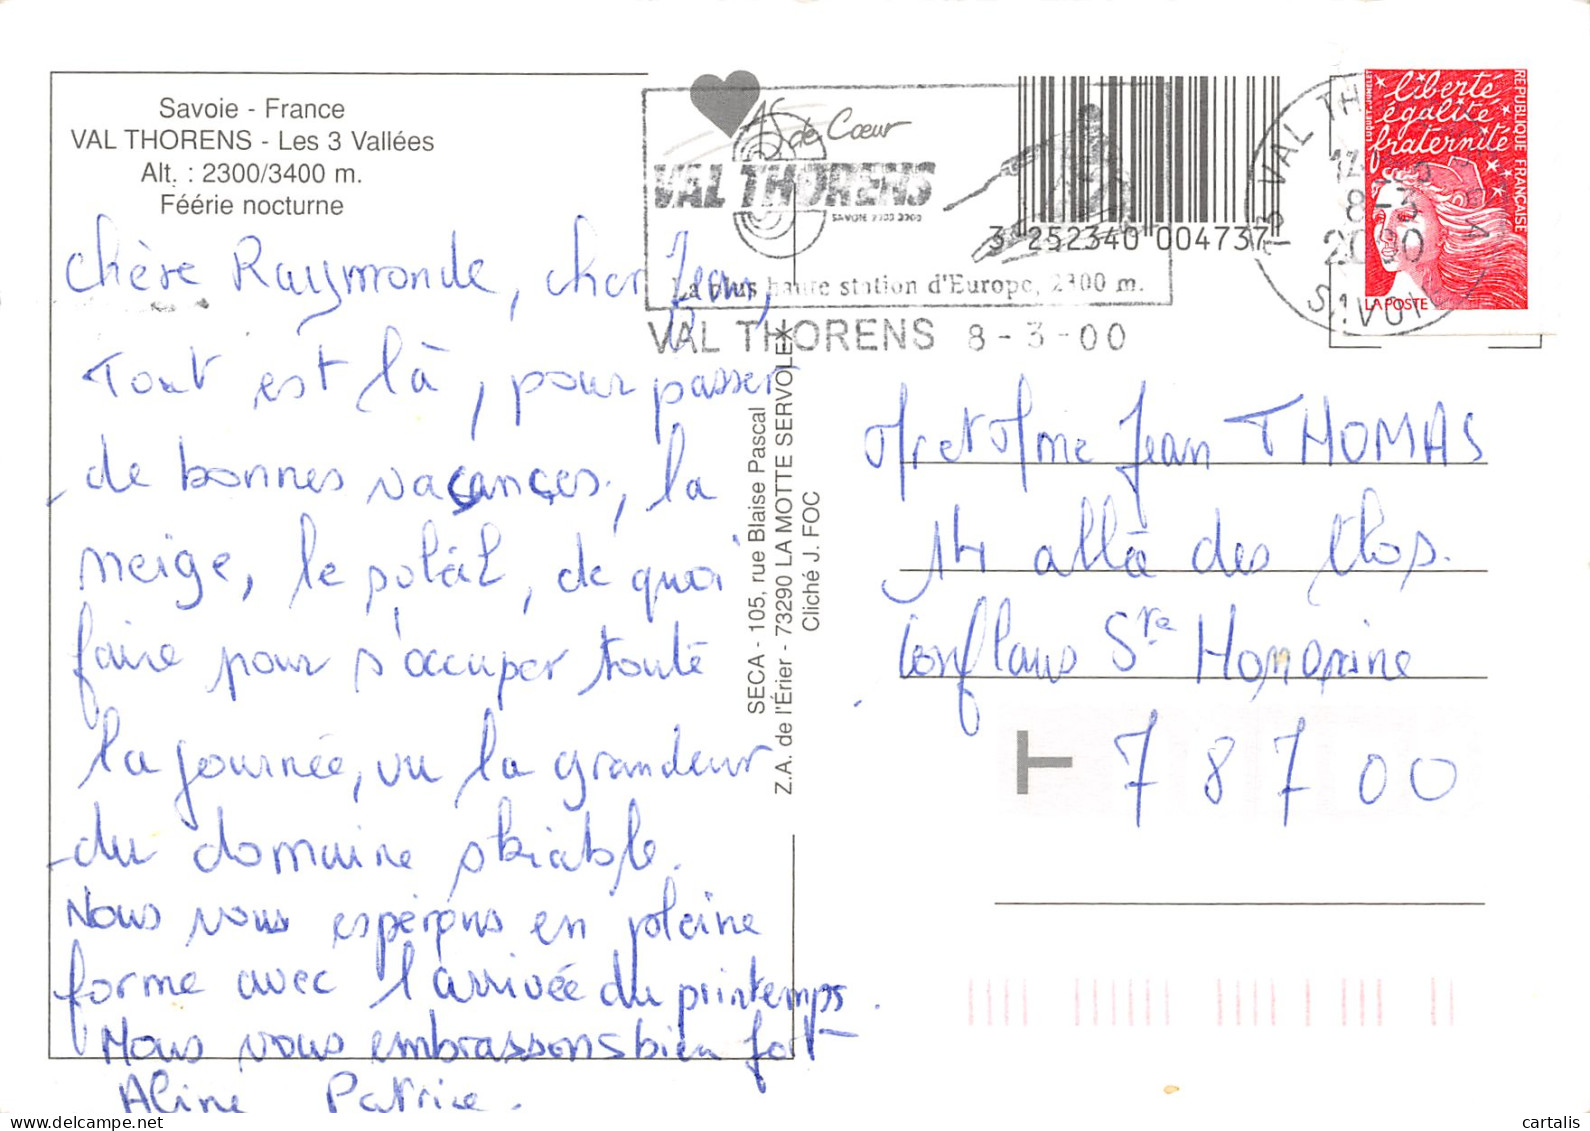 Savoie - France
VAL THORENS - Les 3 Vallées
Alt. : 2300/3400 m.
Féérie nocturne
Chère Raymonde, cher Jean,
Tout est là, pour passer
de bonnes vacances, la
neige, le soleil, de quoi
faire pour s'occuper toute
la journée, vu la grandeur
du domaine skiable.
Nous vous espérons en pleine
forme avec l'arrivée du printemps.
Nous vous embrassons bien fort
Aline Patrice.
SECA - 105, rue Blaise Pascal
Z.A. de l'Érier - 73290 LA MOTTE SERVOLEX
Cliché J. FOC
AS de Cœur
VAL THORENS
SAVOIE 2300 3300
La plus haute station d'Europe, 2300 m.
VAL THORENS 8-3-00
3 252340 004737
VAL TH
8-3
2000
SAVOIE
liberté
égalité
fraternité
RÉPUBLIQUE FRANÇAISE
LUQUET JUMELET
LA POSTE
Mr et Mme Jean THOMAS
14 allée des Clos.
Conflans Ste Honorine
T 78700
cartalis.com
cartalis